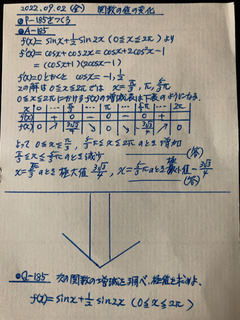 2022.09.02(金) 関数の値の変化
◎P-185をつくろう
◎A-185
f(x)=sinx+½sin2x (0≦x≦2π) より
f'(x)=cosx+cos2x=cosx+2cos²x-1
=(cosx+1)(2cosx-1)
f'(x)=0とおくと cosx=-1,½
この解は 0≦x≦2πでは x=π/3, π, 5/3π
0≦x≦2πにおけるf(x)の増減表は下表のようになる.
x 0 … π/3 … π … 5/3π … 2π
f'(x) + 0 - 0 - 0 +
f(x) 0 ↗ 3√3/4 ↘ 0 ↘ -3√3/4 ↗ 0
よって 0≦x≦π/3, 5/3π≦x≦2πのとき 増加
π/3≦x≦5/3πのとき減少 (答)
x=π/3のとき 極大値 3√3/4, x=5/3πのとき 極小値 -3√3/4
(答)
◎Q-185 次の関数の増減を調べ、極値を求めよ.
f(x)=sinx+½sin2x (0≦x≦2π)